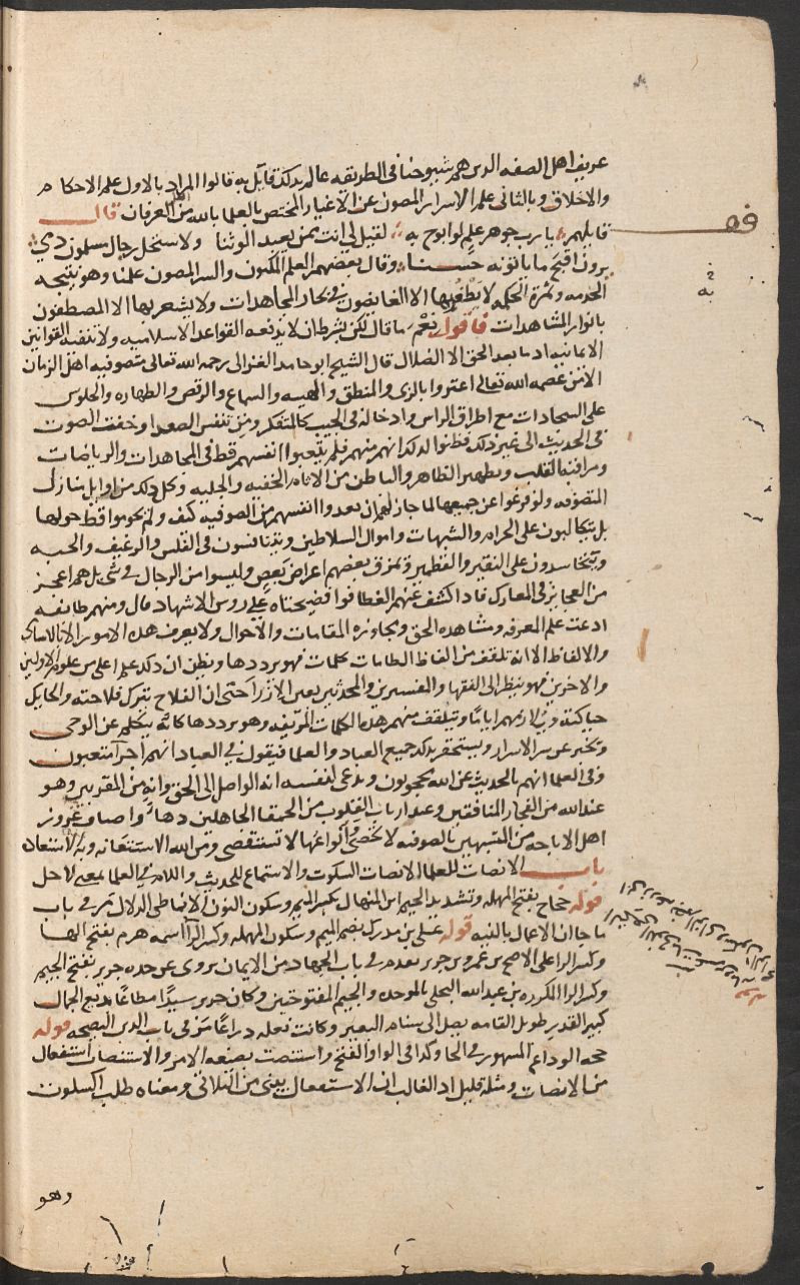 عريف اهل الصفه الذين هم شيوخنا في الطريقه عالم بذلك قايل به قالوا المراد بالاول علم الاحكام
والاخلاق وبالثاني علم الاسرار المصون عن الاغيار المختص بالعلما بالله من اهل العرفان قال
قايلهم يا رب جوهر علم لو ابوح به لقيل لي انت ممن يعبد الوثنا ولاستحل رجال مسلمون دمي
يرون اقبح ما ياتونه حسنا وقال بعضهم العلم المكنون والسر المصون علمنا وهو نتيجه
الخدمه وثمرة الحكمه لا يظفر بها الا الغايصون في بحار المجاهدات ولا يشعر بها الا المصطفون
بانوار المشاهدات فاقول نعم ما قال لكن بشرط ان لا يدفعه القواعد الاسلاميه ولا تنفيه القوانين
الايمانيه اذ ما بعد الحق الا الضلال قال الشيخ ابو حامد الغزالي رحمه الله تعالى متصوفيه اهل الزمان
الا من عصمه الله تعالى اغتروا بالزي والمنطق والهييه والسماع والرقص والطهاره والجلوس
على السجادات مع اطراق الراس وادخاله في الجيب كالمتفكر ومن تنفس الصعدا وخفت الصوت
في الحديث الى غير ذلك فظنوا لذلك انهم منهم فلم يتعبوا انفسهم قط في المجاهدات والرياضات
ومراقبة القلب وتطهير الظاهر والباطن من الاثام الخفيه والجليه وكل ذلك من اوايل منازل
المتصوفه ولو فرغوا عن جميعها لما جاز لهم ان يعدوا انفسهم من الصوفيه كيف ولم يحوموا قط حولها
بل يتكالبون على الحرام والشبهات واموال السلاطين ويتنافسون في الفلس والرغيف والحبه
ويتحاسدون على النقير والقطمير ويمزق بعضهم اعراض بعض وليسوا من الرجال في شي بل هم اعجز
من العجايز في المعارك فاذا كشف عنهم الغطا فوا فضيحتاه على روس الاشهاد قال ومنهم طايفه
ادعت علم المعرفه ومشاهده الحق ومجاوزه المقامات والاحوال ولا يعرف هذه الامور الا بالاسامي
والالفاظ الا انه تلقف من الفاظ الطامات كلمات فهو يرددها ويظن ان ذلك علم اعلى من علوم الاولين
والاخرين فهو ينظر الى الفقها والمفسرين والمحدثين بعين الازرا حتى ان الفلاح يترك فلاحته والحايك
حياكته ويلازمهم اياما ويتلقف منهم هذه الكلمات المزيفه وهو يرددها كانه يتكلم عن الوحي
ويخبر عن سر الاسرار ويستحقر بذلك جميع العباد والعلما فيقول في العباد انهم اجرا متعبون
وفي العلما انهم بالحديث عن الله محجوبون ويدعي لنفسه انه الواصل الى الحق وانه من المقربين وهو
عند الله من الفجار المنافقين وعند ارباب القلوب من الحمقا الجاهلين واصناف غرور
اهل الاباحه من المتشبهين بالصوفه لا تحصى وانواعها لا تستقصى ومن الله الاستعانه وبه الاستعاذه
باب الانصات للعلما الانصات السكوت والاستماع للحديث واللام في العلما بمعنى لاجل
قوله حجاج بفتح المهمله وتشديد الجيم ابن المنهال بكسر الميم وسكون النون الانماطي الدلال مر في باب
ما جا ان الاعمال بالنيه قوله علي بن مدرك بضم الميم وسكون المهمله وكسر الرا اسمه هرم بفتح الها
وكسر الرا على الاصح بن عمرو بن جرير تقدم في باب الجهاد من الايمان يروي عن جده جرير بفتح الجيم
وكسر الرا المكرره بن عبد الله البجلي بالموحده والجيم المفتوحتين وكان جرير سيدا مطاعا بديع الجمال
كبير القدر طويل القامه يصل الى سنام البعير وكانت نعله ذراعا مر في باب الدين النصيحه قوله
حجه الوداع المشهور في الحا وكذا في الواو الفتح واستنصت بصيغه الامر والاستنصات استفعال
من الانصات ومثله قليل اذ الغالب ان الاستفعال يبنى من الثلاثي ومعناه طلب السكوت
وهو